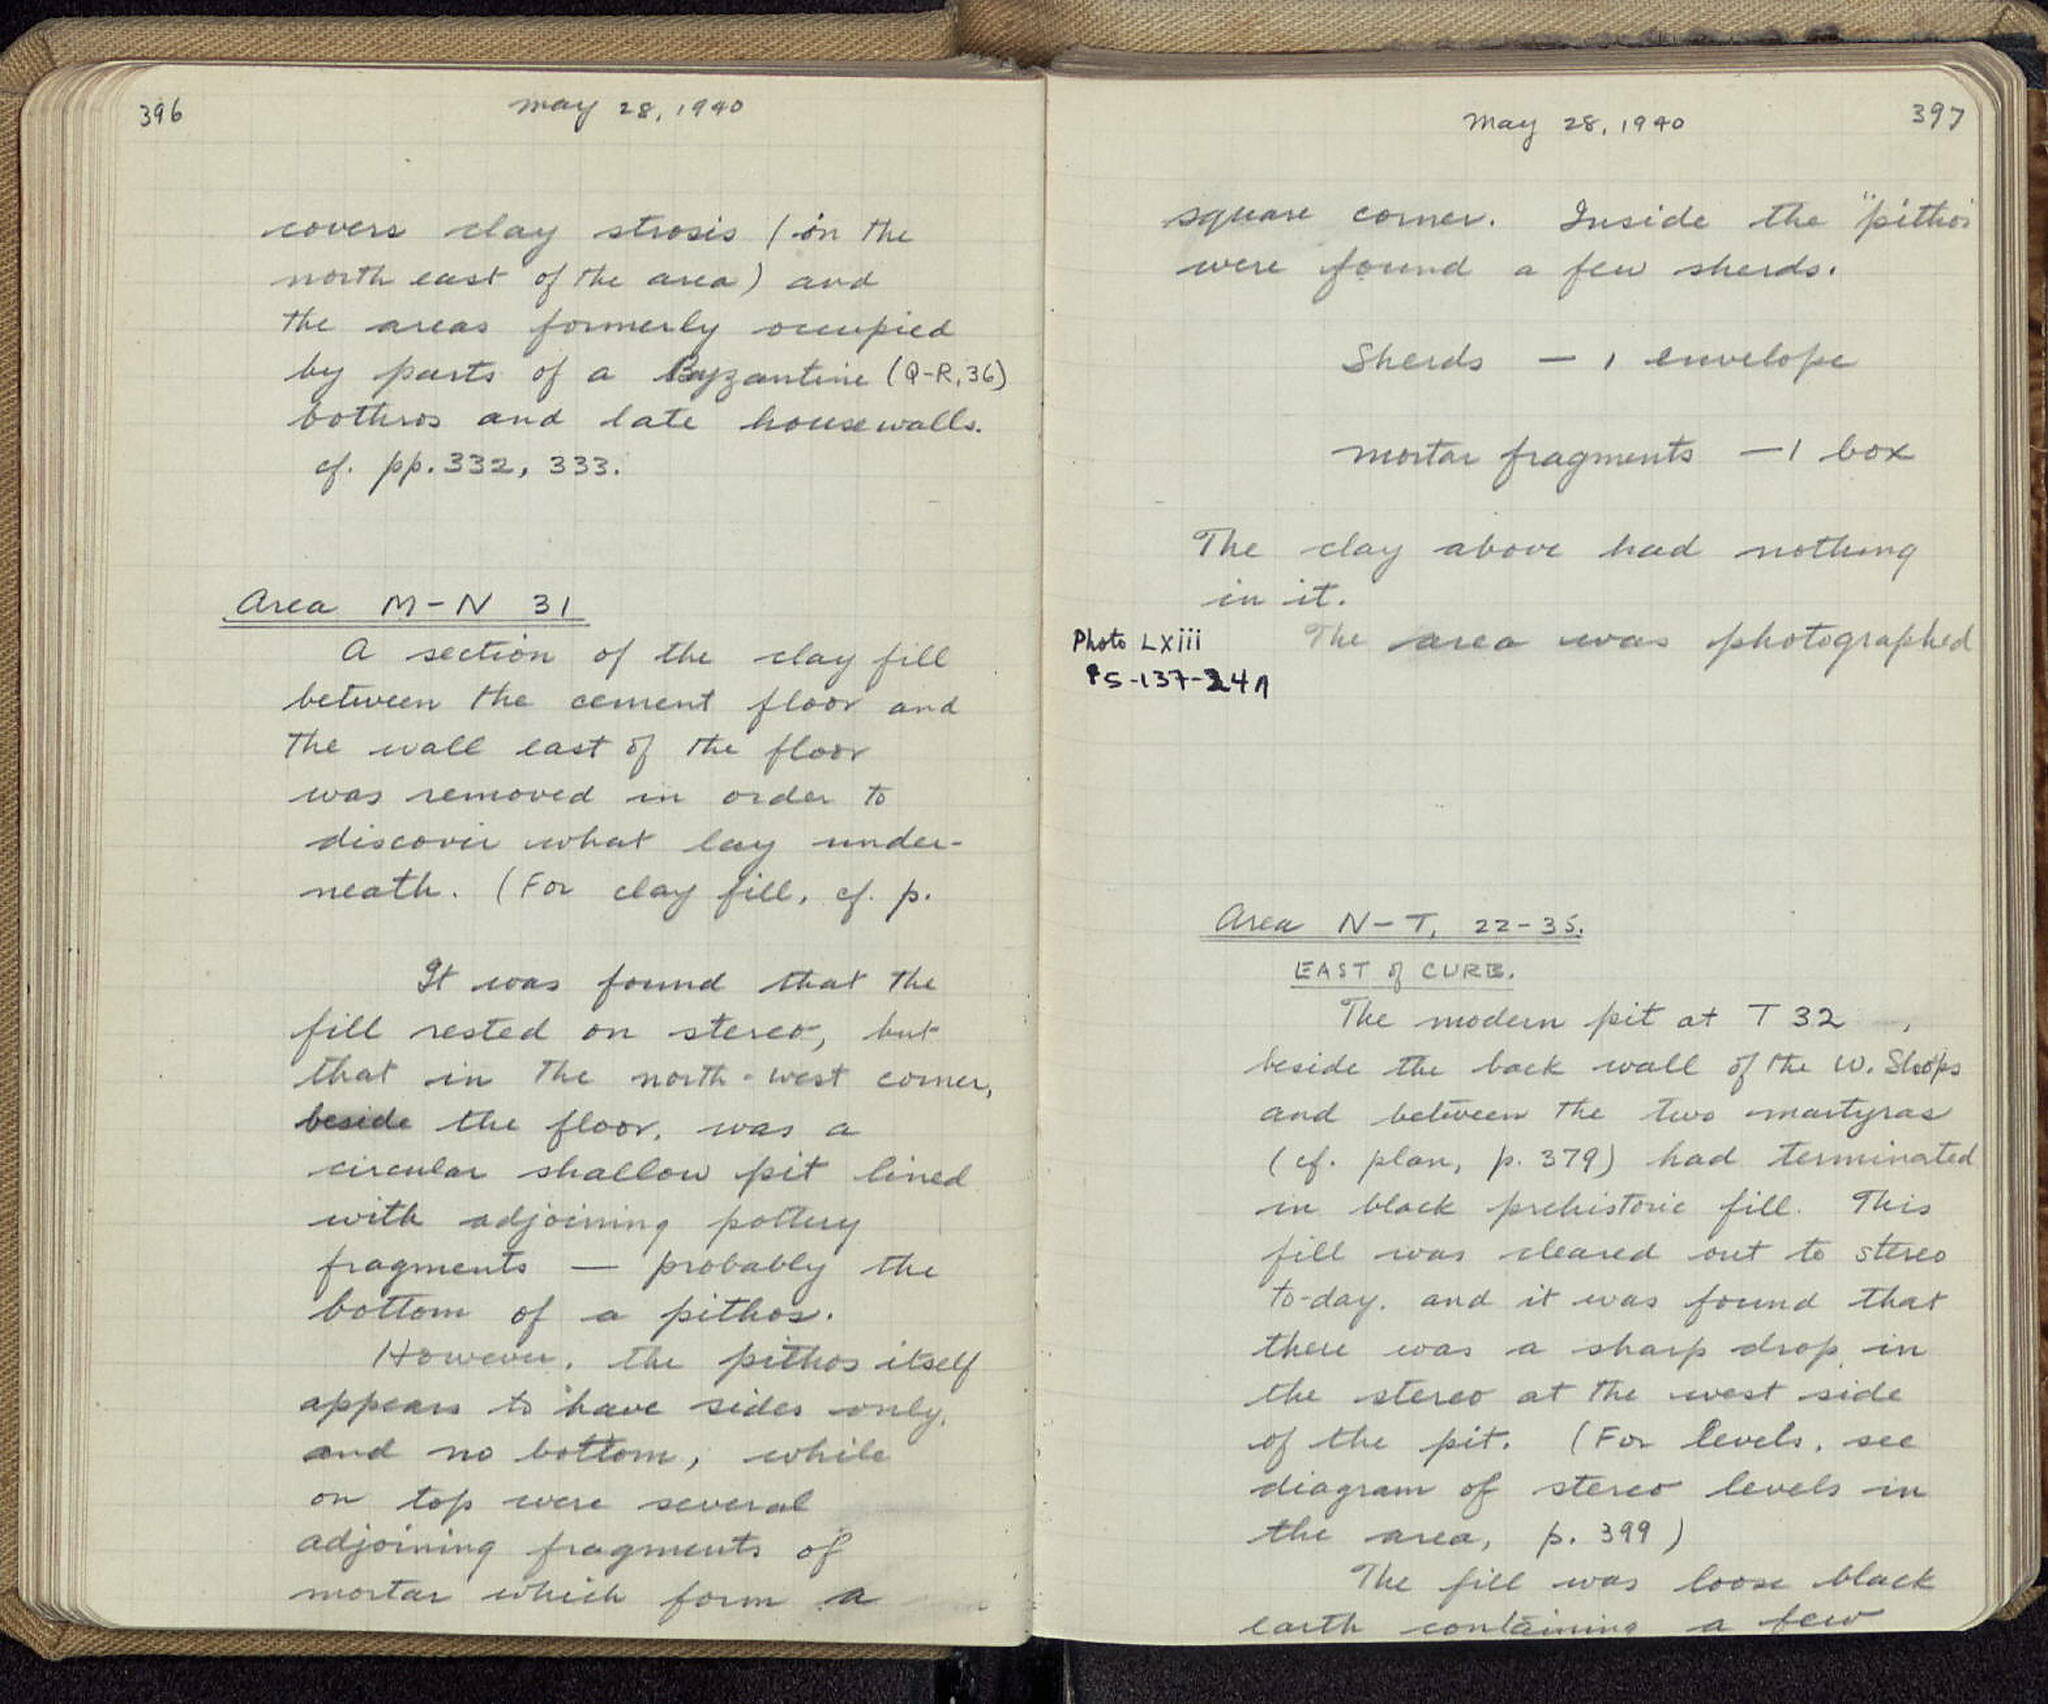 396
May 28, 1940
covers clay strosis (in the
north east of the area) and
the areas formerly occupied
by parts of a Byzantine (Q-R, 36)
bothros and late house walls.
cf. pp. 332, 333.
Area M-N 31
A section of the clay fill
between the cement floor and
the wall east of the floor
was removed in order to
discover what lay under-
neath. (For clay fill, cf. p.
It was found that the
fill rested on stereo, but
that in the north-west corner,
beside the floor, was a
circular shallow pit lined
with adjoining pottery
fragments — probably the
bottom of a pithos.
However, the pithos itself
appears to have sides only,
and no bottom, while
on top were several
adjoining fragments of
mortar which form a
397
May 28, 1940
square corner. Inside the "pithos"
were found a few sherds.
Sherds — 1 envelope
mortar fragments — 1 box
The clay above had nothing
in it.
Photo LXiii
The area was photographed
Area N-T, 22-35.
EAST of CURB.
The modern pit at T 32 ,
beside the back wall of the W. Shops
and between the two martyras
(cf. plan, p. 379) had terminated
in black prehistoric fill. This
fill was cleared out to stereo
to-day, and it was found that
there was a sharp drop in
the stereo at the west side
of the pit. (For levels, see
diagram of stereo levels in
the area, p. 399)
The fill was loose black
earth containing a few